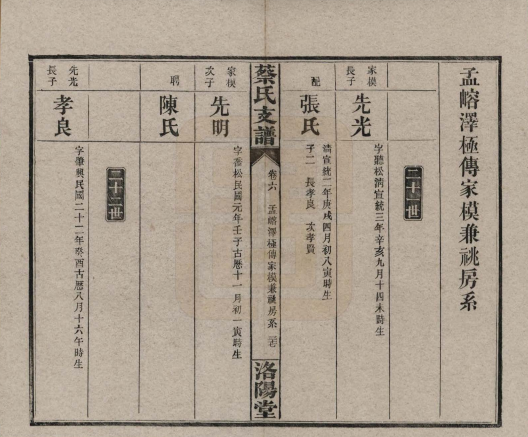 孟嵱澤極傳家模兼祧房系
二十一世
家模
長子
先光
字聽松淸宣統三年辛亥九月十四未時生
配
張氏
淸宣統二年庚戌四月初八寅時生
子二 長孝良 次孝贤
蔡氏支譜
卷六 孟嵱澤極傳家模兼祧房系
洛陽堂
家模
次子
先明
字喬松民國元年壬子古曆十一月初一寅時生
聘
陳氏
二十二世
先光
長子
孝良
字肇興民國二十二年癸酉古曆八月十六午時生